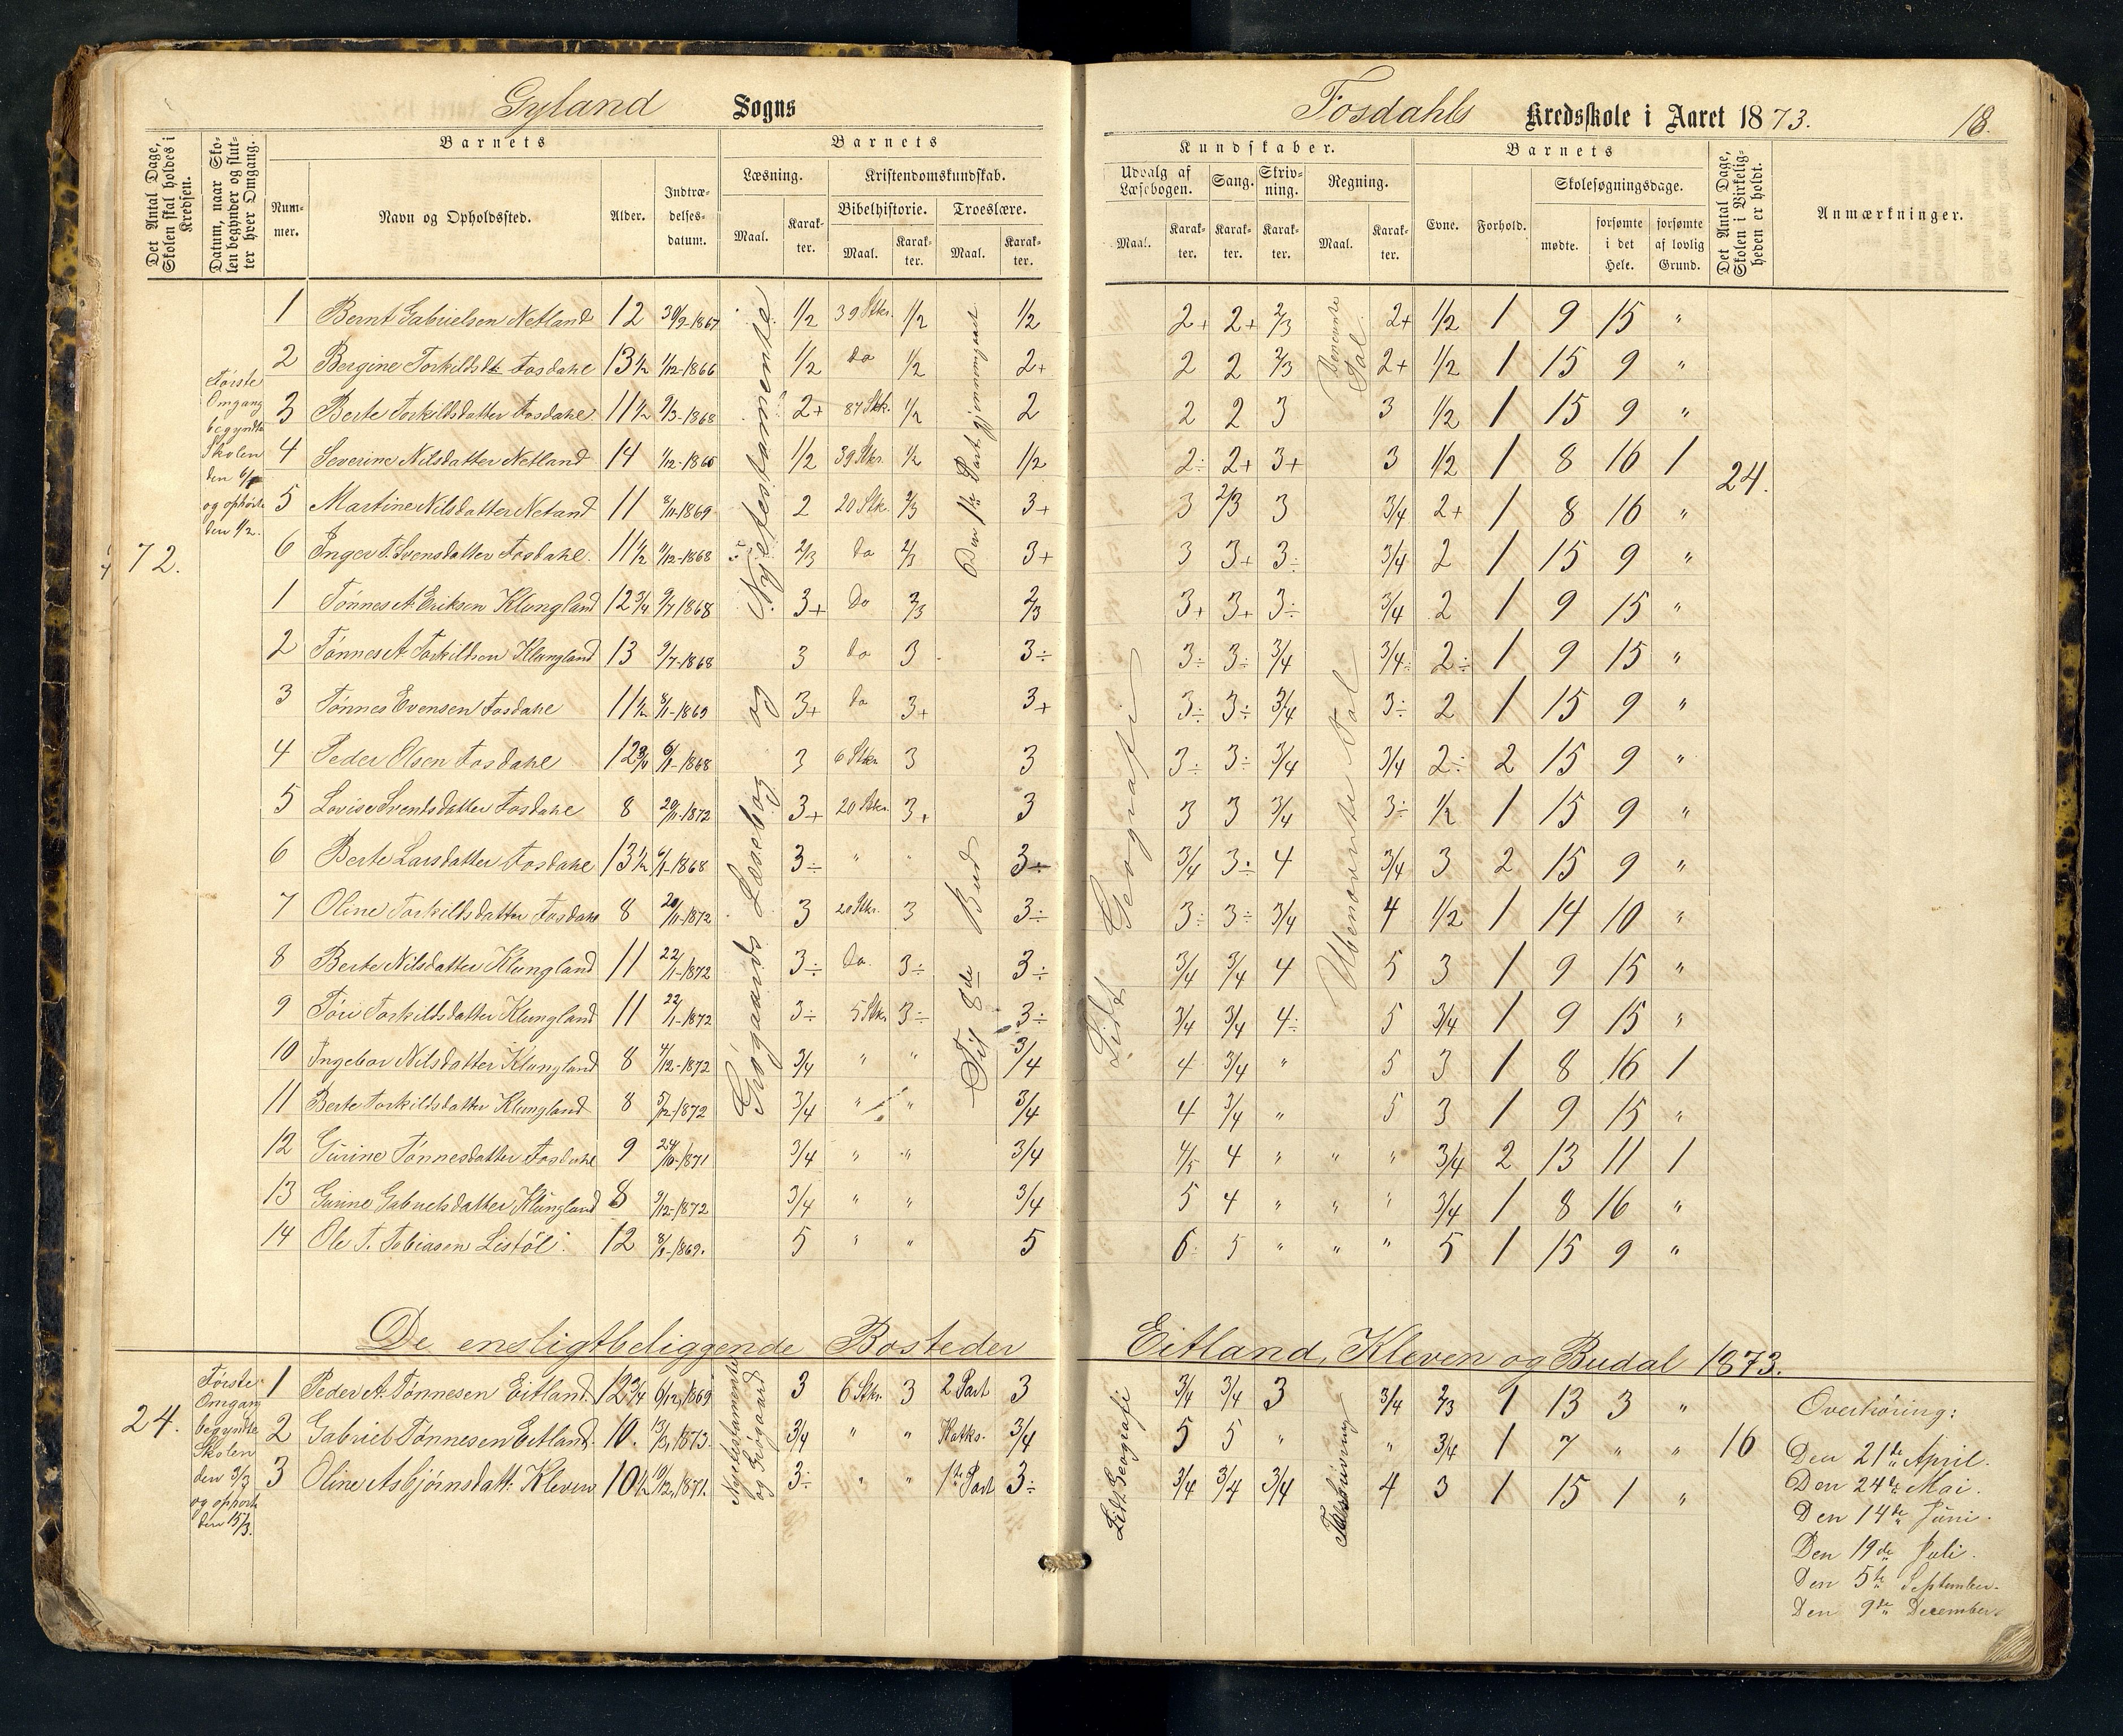 Gyland Sogns
Fosdahls Kredsskole i Aaret 1873. 18.
Det Antal Dage, Skolen skal holdes i Kredsen.
Datum, naar Skolen begynder og slutter hver Omgang.
Barnets
Nummer.
Navn og Opholdssted.
Alder.
Indtrædelsesdatum.
Barnets
Læsning.
Maal.
Karakter.
Kristendomskundskab.
Bibelhistorie.
Maal.
Karakter.
Troeslære.
Maal.
Karakter.
Kundskaber.
Udvalg af Læsebogen.
Maal.
Karakter.
Sang.
Karakter.
Skrivning.
Karakter.
Regning.
Maal.
Karakter.
Barnets
Evne.
Forhold.
Skolesøgningsdage.
mødte.
forsømte i det Hele.
forsømte af lovlig Grund.
Det Antal Dage, Skolen i Virkeligheden er holdt.
Anmærkninger.
72.
Første
Omgang
begyndte
Skolen
den 6/1
og ophørte
den 1/2.
Nyetestamente
og
Grøgaards Læsebog
Den 1ste Part gjennemgaaet
Til 8de Bud
Lidt Geografi
Benevnte Tal
Ubenævnte Tal
24.
1 Bernt Gabrielsen Netland 12 30/9-1867 1/2 39 Stkr. 1/2 1/2 2+ 2+ 2/3 2+ 1/2 1 9 15 "
2 Bergine Torkildsdtr Fosdahl 13 1/2 1/12-1866 1/2 do 1/2 2+ 2 2 2/3 2+ 1/2 1 15 9 "
3 Berte Torkildsdatter Fosdahl 11 1/2 2/3-1868 2+ 87 Stk. 1/2 2 2 2 3 3 1/2 1 15 9 "
4 Severine Nilsdatter Netland 14 1/12-1865 1/2 39 Stkr. 1/2 1/2 2÷ 2+ 3+ 3 1/2 1 8 16 1
5 Martine Nilsdatter Netand 11 8/11-1869 2 20 Stk. 2/3 3+ 3 2/3 3 3/4 2+ 1 8 16 "
6 Inger T. Svensdatter Fosdahl. 11 1/2 4/12-1868 2/3 do 2/3 3+ 3 3+ 3÷ 3/4 2 1 15 9 "
1 Tønnes A. Eriksen Klungland 12 3/4 9/7 1868 3+ Do 2/3 2/3 3+ 3+ 3÷ 3/4 2 1 9 15 "
2 Tønnes A. Torkildsen Klungland 13 9/7-1868 3 do 3 3÷ 3÷ 3÷ 3/4 3/4÷ 2÷ 1 9 15 "
3 Tønnes Evensen Fosdahl 11 1/2 8/11-1869 3+ do 3+ 3+ 3÷ 3÷ 3/4 3÷ 2 1 15 9 "
4 Peder Olsen Fosdahl 12 3/4 6/11-1868 3 6 Stkr 3 3 3÷ 3÷ 3/4 3/4 2÷ 2 15 9 "
5 Lovise Svendsdatter Fosdahl 8 20/11-1872 3+ 20 Stkr. 3+ 3 3 3 3/4 3÷ 1/2 1 15 9 "
6 Berte Larsdatter Fosdahl 13 1/2 6/11-1868 3÷ " " 3÷ 3/4 3÷ 4 3/4 3 2 15 9 "
7 Oline Torkildsdatter Fosdahl 8 20/11-1872 3 20 Stkr. 3 3÷ 3÷ 3÷ 3/4 4 1/2 1 14 10 "
8 Berte Nilsdatter Klungland 11 22/1-1872 3÷ Do. 3÷ 3÷ 3/4 3/4 4 5 3 1 9 15 "
9 Tøri Torkildsdatter Klungland 11 22/1-1872 3÷ 5 Stkr. 3÷ 3÷ 3/4 3/4 4÷ 5 3/4 1 9 15 "
10 Ingebor Nilsdatter Klungland 8 4/12-1872 3/4 " " 3/4 4 3/4 " 5 3 1 8 16 1
11 Berte Torkildsdatter Klungland 8 5/12-1872 3/4 " " 3/4 4 3/4 " 5 3 1 9 15 "
12 Gurine Tønnesdatter Fosdahl 9 24/10-1871 3/4 " " 3/4 4/5 4 " " " 3/4 2 13 11 1
13 Gurine Gabrielsdatter Klungland 8 9/12-1872 3/4 " " 3/4 5 4 " " " 3/4 1 8 16 "
14 Ole T. Tobiasen Listöl 12 8/11-1869. 5 " " 5 6÷ 5 " " " 5 1 15 9 "
De ensligtbeliggende Bosteder Eitland, Kleven og Budal 1873.
24.
Første
Omgang
begyndte
Skolen
den 3/3
og ophørte
den 15/3.
Nyetestamente
og Grøgaard
Lidt Geografi
16
1 Peder A. Tønnesen Eitland. 12 3/4 6/12, 1869 3 6 Stkr. 3 2 Part 3 3/4 3/4 3 3/4 2/3 1 13 3 "
2 Gabriel Tønnesen Eitland. 10. 13/3, 1873. 3/4 " " Katks. 3/4 5 5 " " 3/4 1 7 " "
3 Oline Asbjørnsdatt. Kleven 10 1/2 19/12, 1871. 3÷ " " 1ste Part 3÷ 3/4 3/4 3/4 4 3 1 15 1 "
Overhøring:
Den 21de April.
Den 24de Mai.
Den 14de Juni.
Den 19de Juli.
Den 5te September.
Den 9de December.